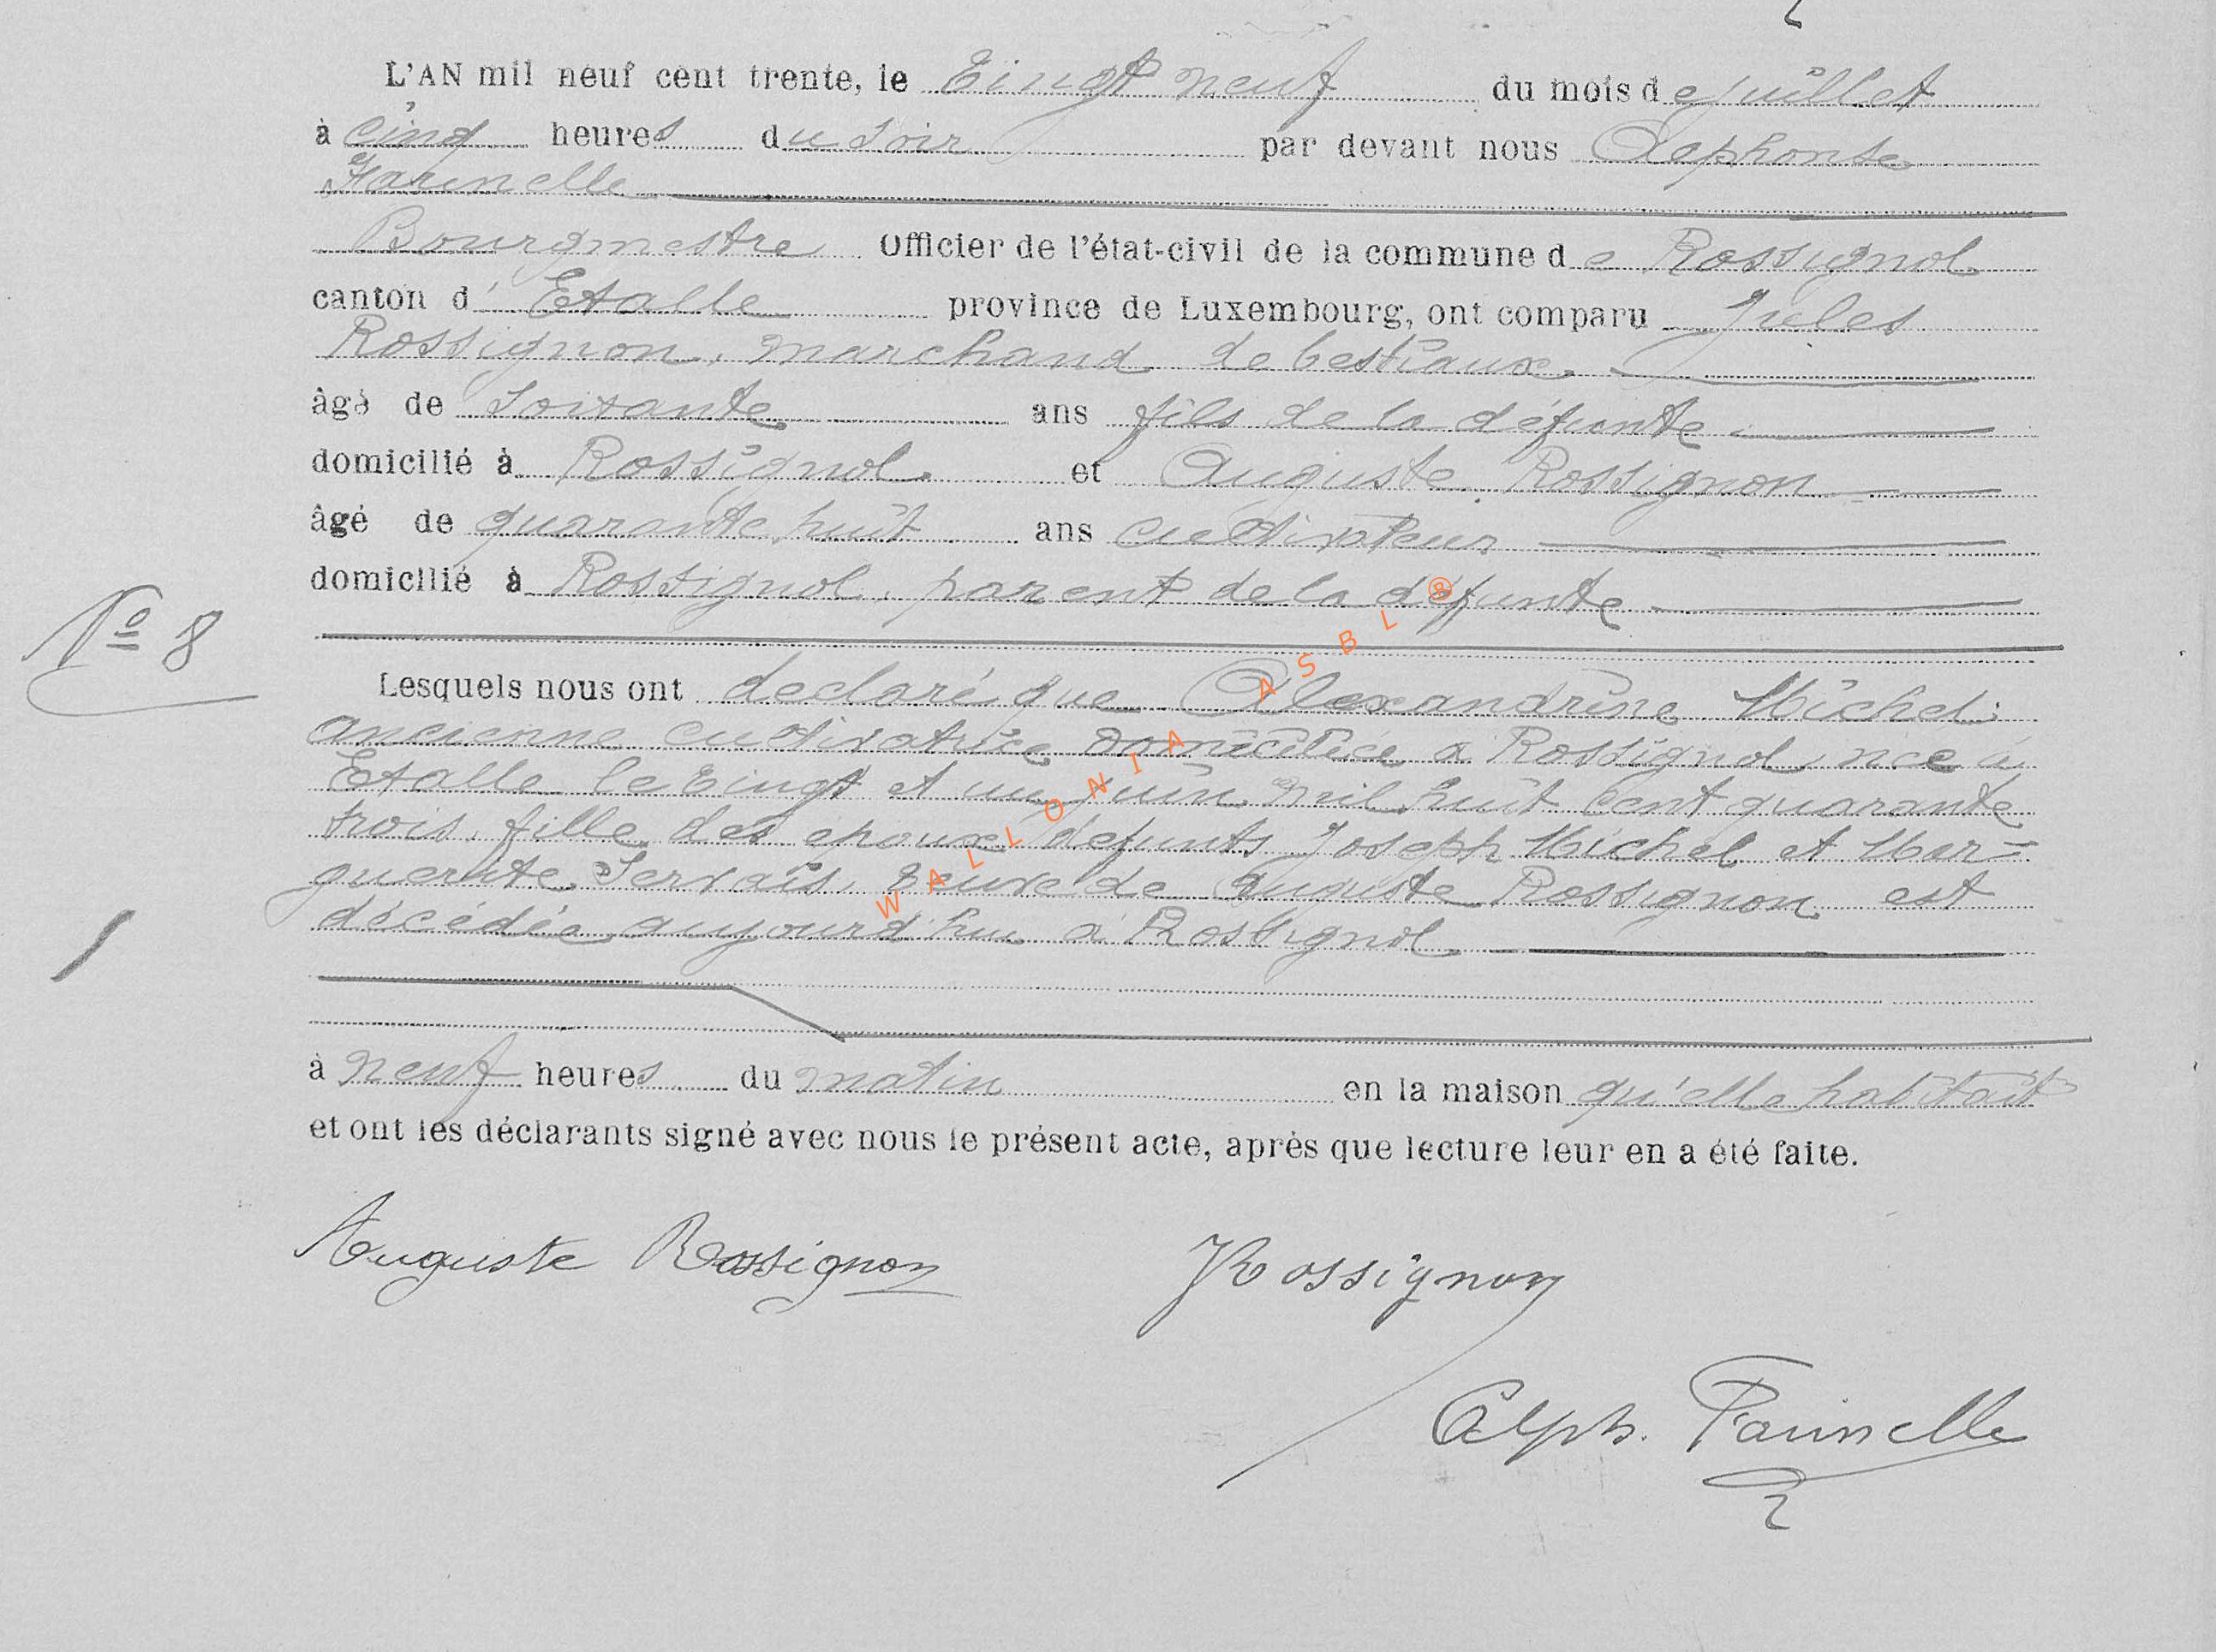 L'AN mil neuf cent trente, le Vingt neuf du mois de juillet
à cinq heures du soir par devant nous Alphonse
Farinelle
Bourgmestre Officier de l'état-civil de la commune de Rossignol
canton d'Etalle province de Luxembourg, ont comparu Jules
Rossignon, marchand de bestiaux,
âgé de Soixante ans fils de la défunte
domicilié à Rossignol et Auguste Rossignon
âgé de quarante huit ans cultivateur
domicilié à Rossignol, parent de la défunte
No 8
Lesquels nous ont declaré que Alexandrine Michel,
ancienne cultivatrice domiciliée à Rossignol née à
Etalle le vingt et un juin mil huit cent quarante
trois, fille des epoux defunts Joseph Michel et Mar=
guerite Servais, veuve de Auguste Rossignon est
décédée aujourd'hui à Rossignol
à neuf heures du matin en la maison qu'elle habitait
et ont les déclarants signé avec nous le présent acte, après que lecture leur en a été faite.
Auguste Rossignon JRossignon
Alph. Farinelle
WALLONIA ASBL ®